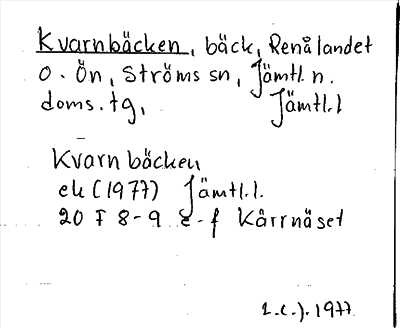 Kvarnbäcken, bäck, Renålandet
o. Ön, Ströms sn, Jämtl. n.
doms. tg, Jämtl. l
Kvarnbäcken
ek (1977) Jämtl. l.
20 F 8-9 e-f Kårrnäset
1977